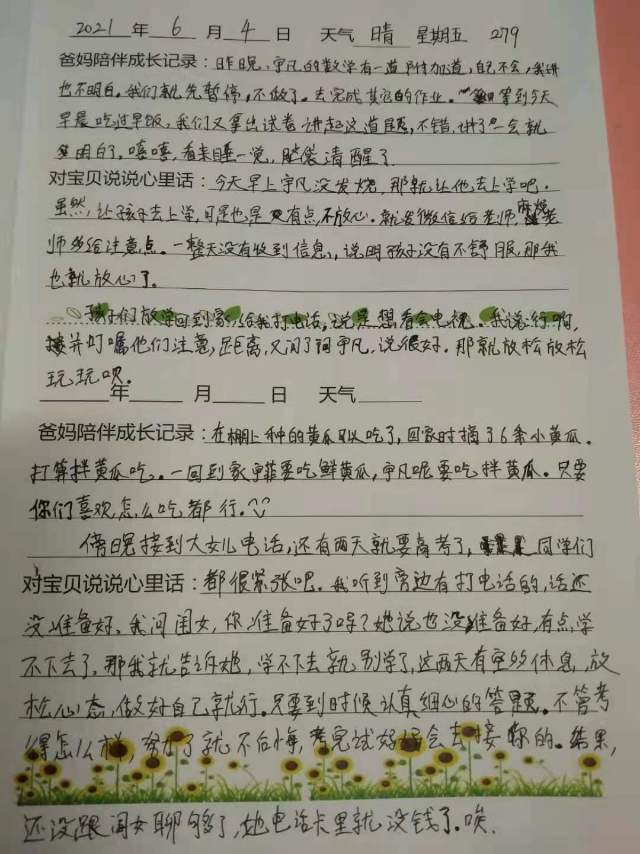 2021年6月4日 天气晴 星期五 279
爸妈陪伴成长记录：昨晚，宇凡的数学有一道附加道，自己不会，我讲
也不明白。我们就先暂停，不做了。去完成其它的作业。等到今天
早晨吃过早饭，我们又拿出试卷讲起这道题，不错，讲了一会就
明白了，嘻嘻，看来睡一觉，脑袋清醒了
对宝贝说说心里话：今天早上宇凡没发烧，那就让他去上学吧。
虽然，让孩子去上学，可是也是有点不放心。就发微信给老师，麻烦老
师多给注意点。一整天没有收到信息，说明孩子没有不舒服，那我
也就放心了。
孩子们放学回到家，给我打电话，说是想看会电视。我说行啊，
并叮嘱他们注意距离，又问了问宇凡，说很好。那就放松放松
玩玩呗。
年 月 日 天气
爸妈陪伴成长记录：在棚上种的黄瓜可以吃了，回家时摘了6条小黄瓜。
打算拌黄瓜吃。一回到家宇菲要吃鲜黄瓜，宇凡呢要吃拌黄瓜。只要
你们喜欢怎么吃都行。
傍晚接到大女儿电话，还有两天就要高考了，同学们
对宝贝说说心里话：都很紧张呢。我听到旁边有打电话的，话还
没准备好，我问闺女，你准备好了吗？她说也没准备好，有点学
不下去了，那我就告诉她，学不下去就别学了，这两天有空多休息，放
松心态，做好自己就行。只要到时候认真细心的答题。不管考
得怎么样，努力了就不后悔，考完试好妈会去接你的。结果，
还没跟闺女聊够了，她电话卡里就没钱了。唉．